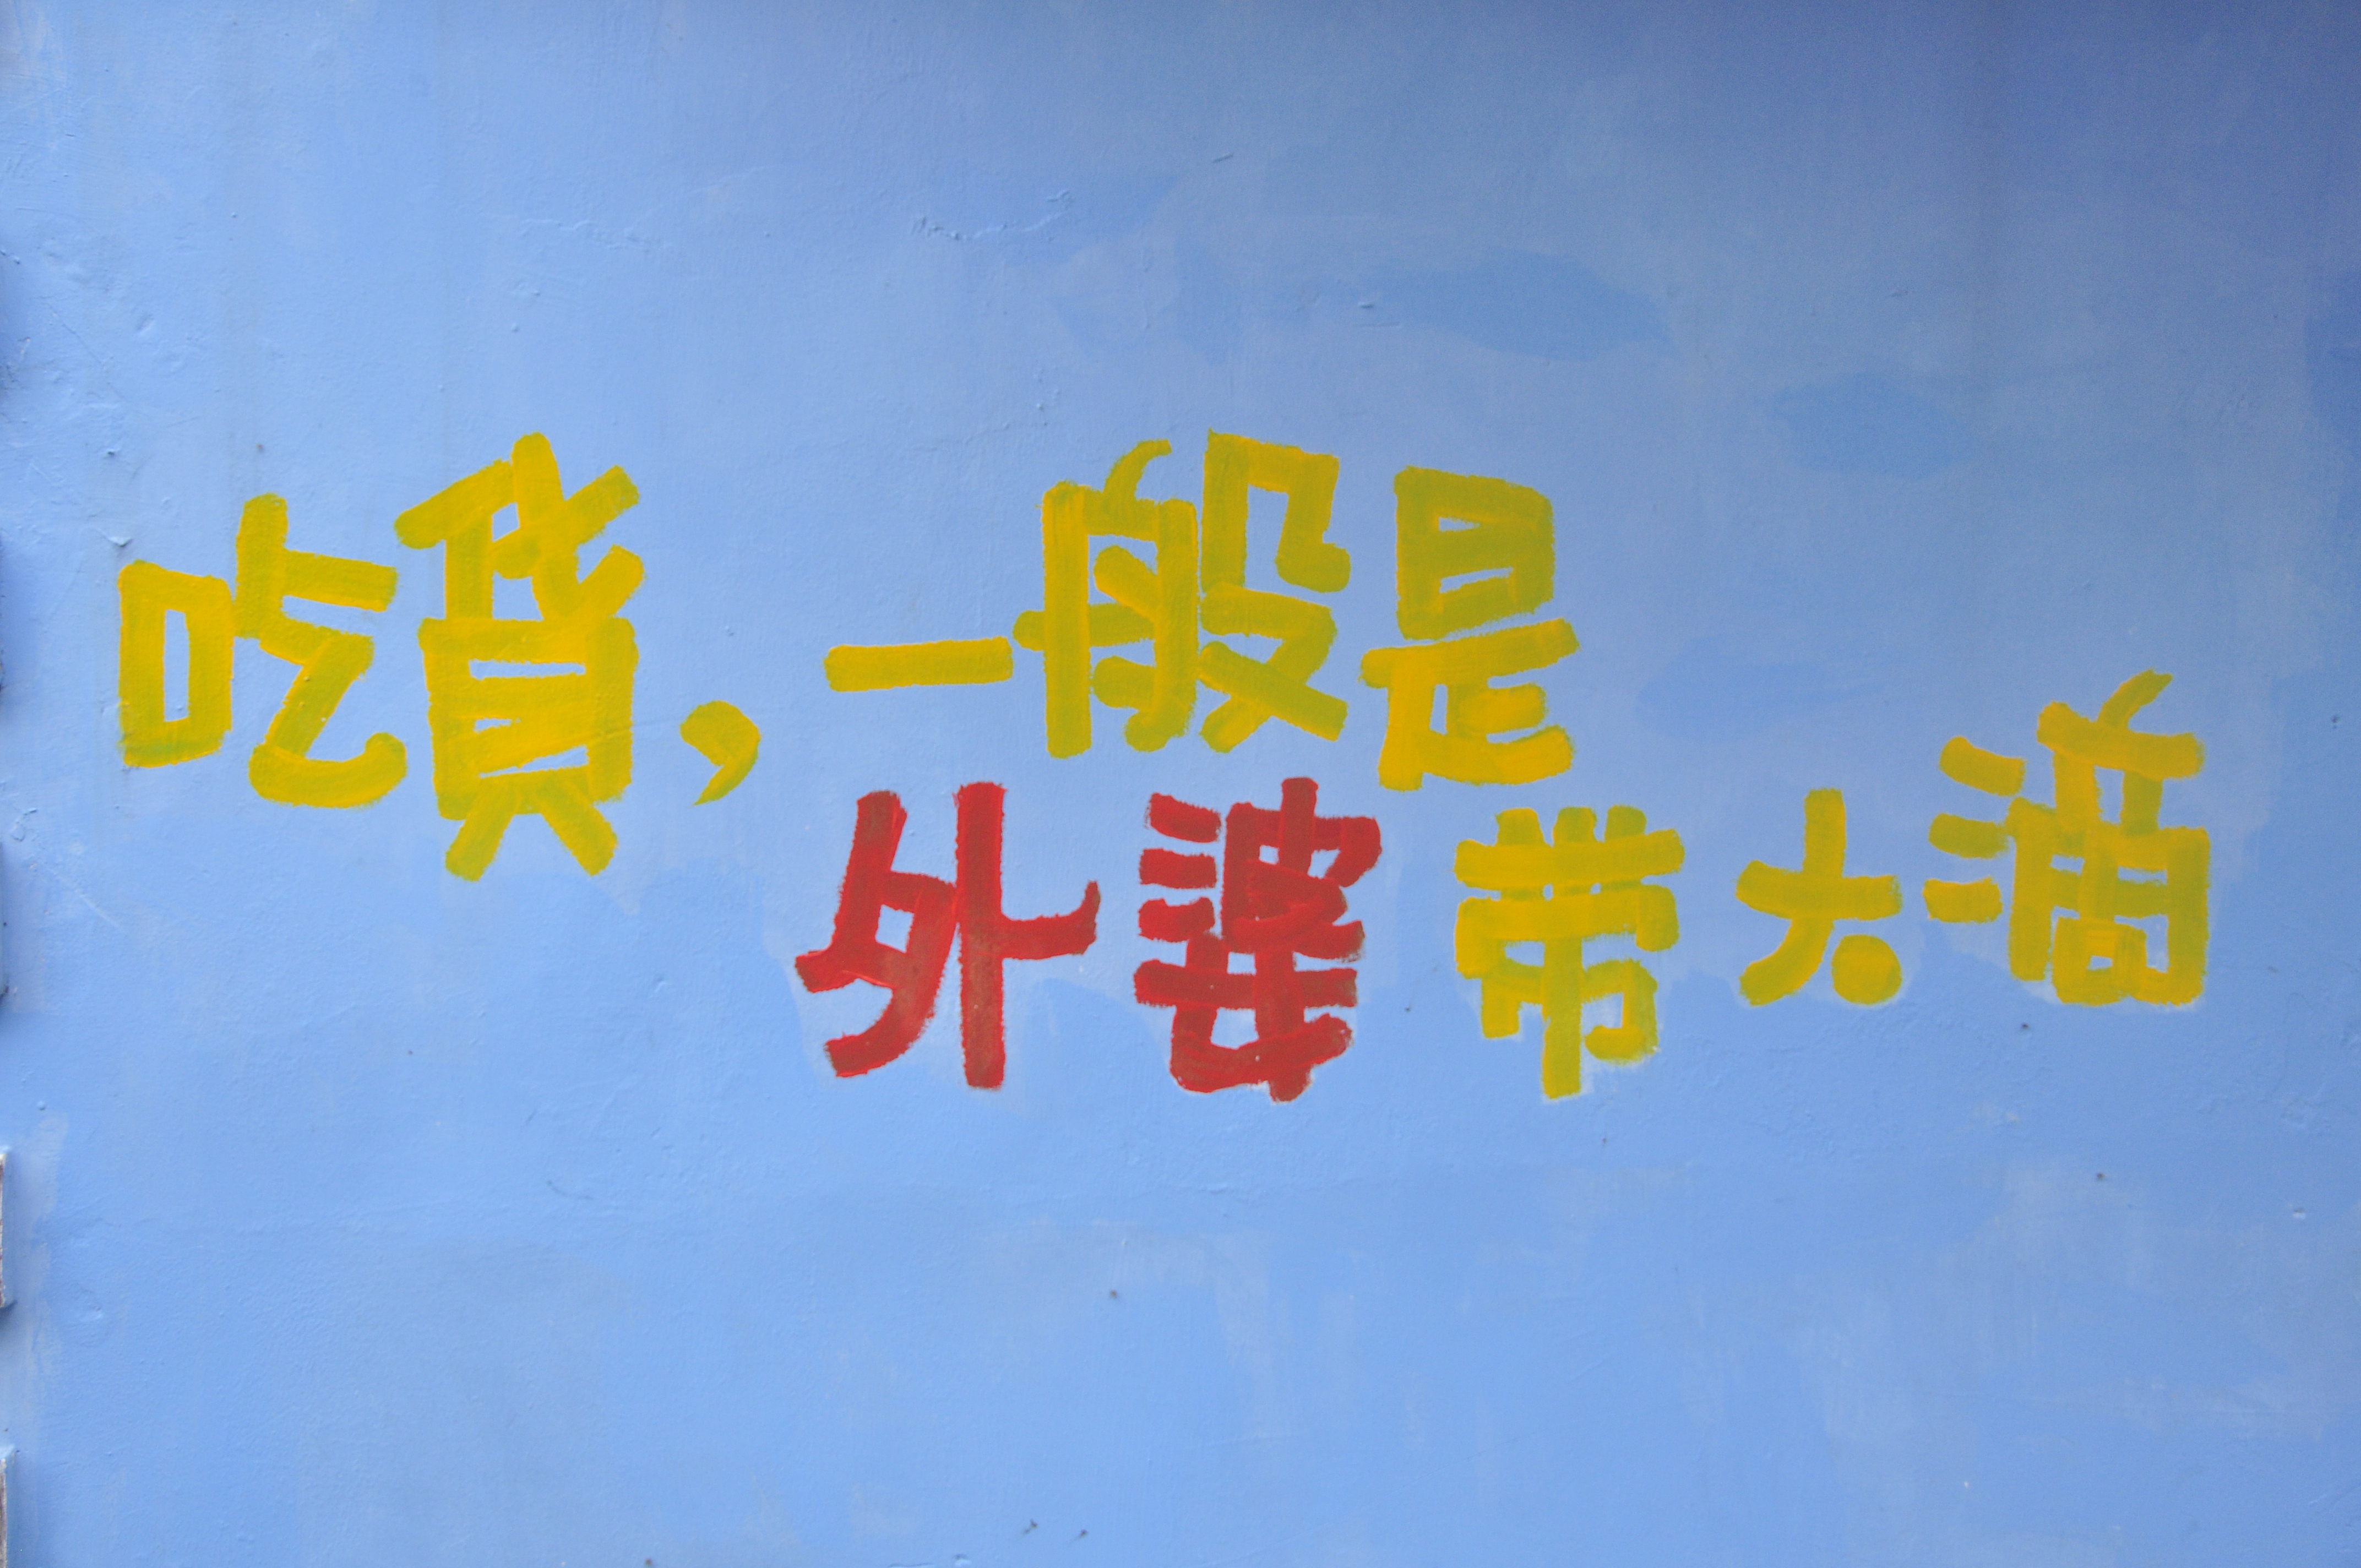 吃貨，一般是
外婆带大滴